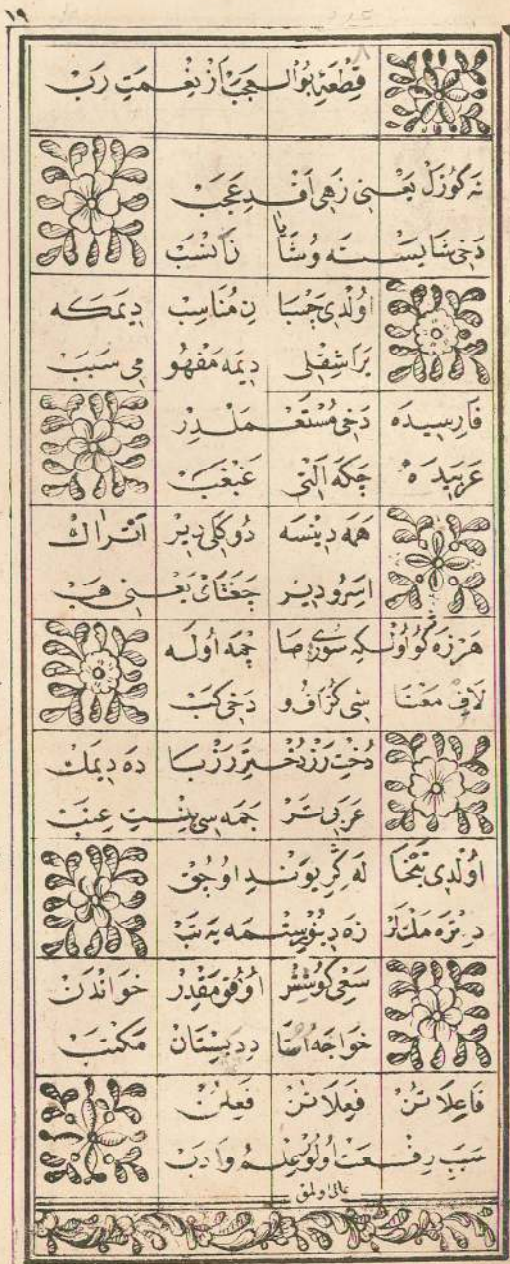 ١٩
قِطْعَهٔ بُوالعَجَبْ اَزْ نِعْمَتِ رَبْ
نَه كُوزَلْ يَعْنِى زَهِى اَفْدِ عَجَبْ
دَخِى شَايَسْتَه وُ شَايَا نْ اَنْسَبْ
اُولْدِى چَسْبَا نِ مُنَاسِبْ دِيمَكَه
بَرَاشِقْلِى دِيمَه مَفْهُو مِى سَبَبْ
فَارِسِيدَه دَخِى مُسْتَعْمَلْدِرْ
عَرَبِيدَه چَكَه اَلْتِى غَبْغَبْ
هَمَه دِينْسَه دُوكَلِى دِيرْ اَتْرَاكْ
اسرودِيـر جَغَتَاىْ يَعْنِى هَبْ
هَرْزَه كُو اُو نْكِه سُوزِى صَا چْمَه اُولَه
لَافِ مَعْنَا سِى كَزَافُ و دَخِى كَبْ
دُخْتِ رَزْ دُخْتَرِ رَزْ بَا دَه دِيمَكْ
عَرَبِى تَرْ جَمَه سِى بِنْتِ عِنَبْ
اُولْدِى تَبْخَا لَه كِرِيوَنْدِ اُوچُقْ
دِتْرَه مَكْ لَرْ زَه دِنُورْ سِتْمَه يَه تَبْ
سَعْى كُوشِشْ اُوقُومَقْدِرْ خَوَانْدَنْ
خَوَاجَه اُسْتَا دِ دَبِسْتَانْ مَكْتَبْ
فَاعِلَاتُنْ فَعِلَاتُنْ فَعِلُنْ
سَبَبِ رِفْعَتْ اُولُورْ عِلْمُ وَ ادَبْ
عالى اولمق